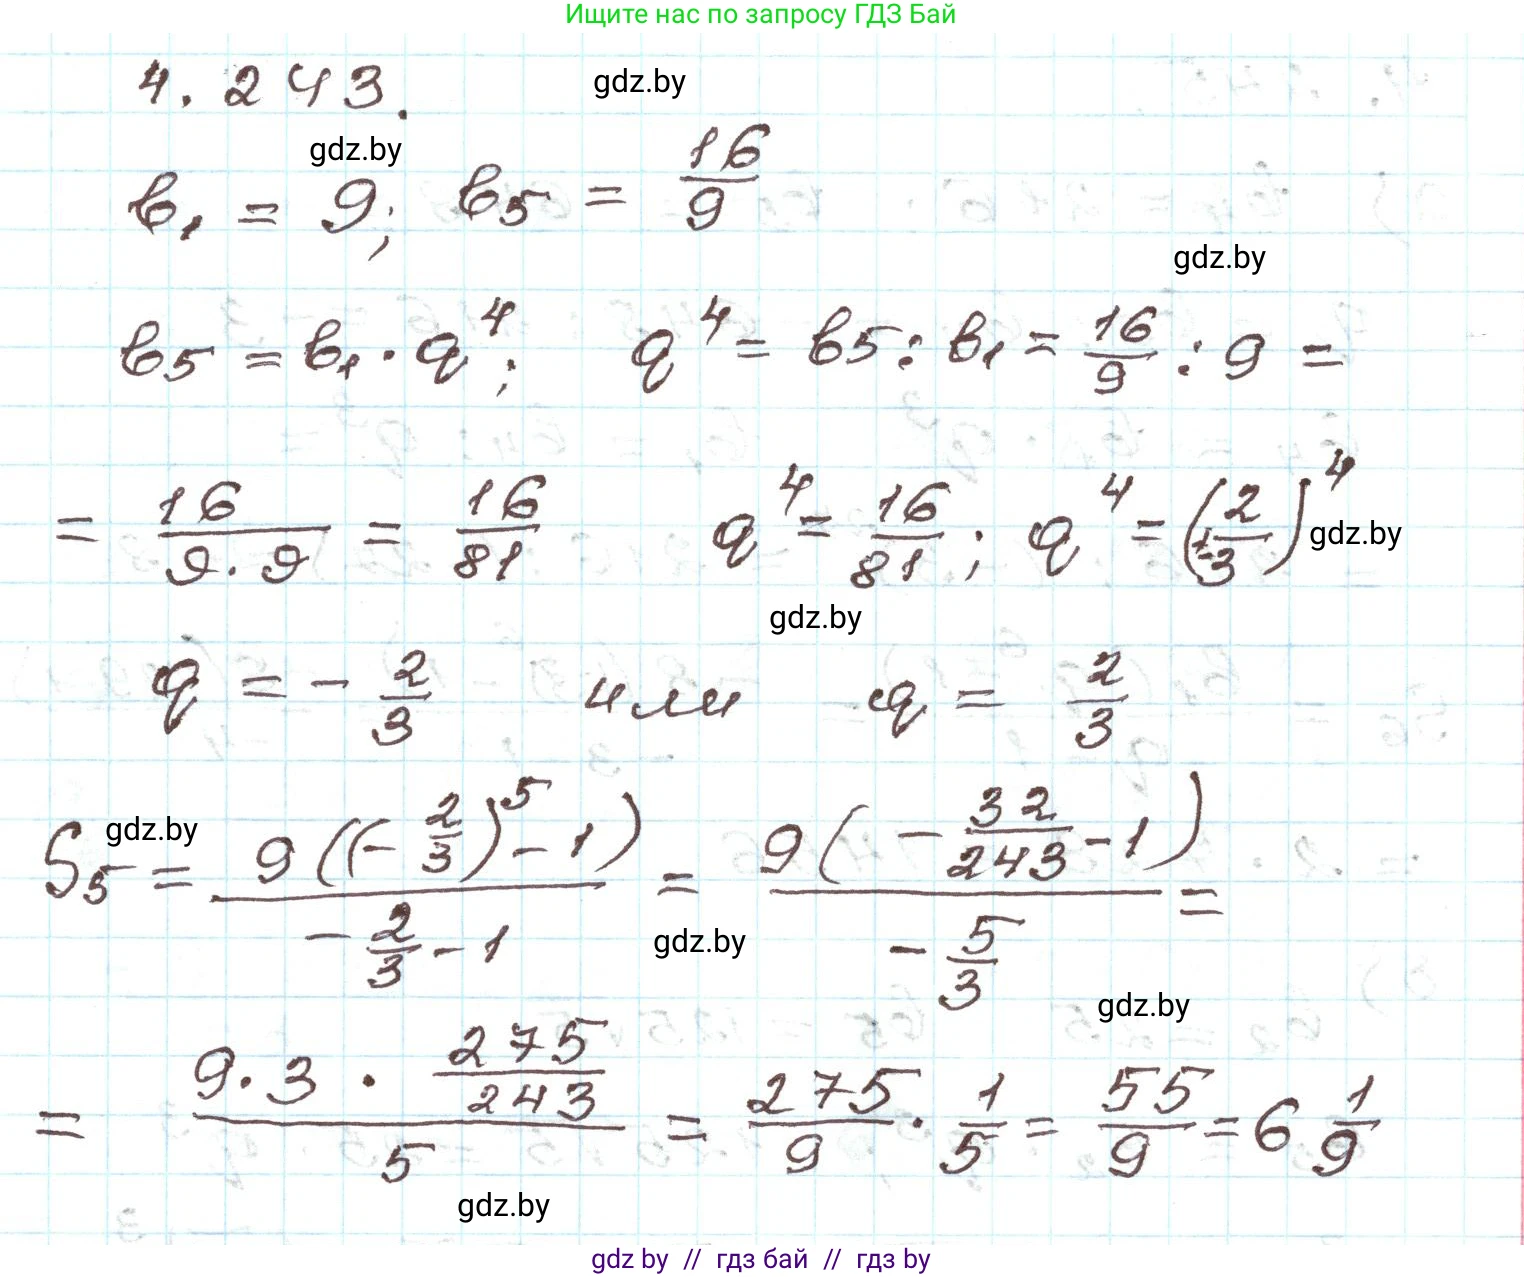 Ищите нас по запросу ГДЗ Бай
4.243.
gdz.by
gdz.by
b₁ = 9; b₅ = 16/9
gdz.by
b₅ = b₁ · q⁴; q⁴ = b₅ : b₁ = 16/9 : 9 =
= 16/(9·9) = 16/81 q⁴ = 16/81; q⁴ = (±2/3)⁴
gdz.by
gdz.by
q = -2/3 или q = 2/3
gdz.by
S₅ = 9((-2/3)⁵ - 1)/(-2/3 - 1) = 9(-32/243 - 1)/(-5/3) =
gdz.by
gdz.by
= (9·3 · 275/243)/5 = 275/9 · 1/5 = 55/9 = 6 1/9
gdz.by
gdz by // гдз бай // гдз by